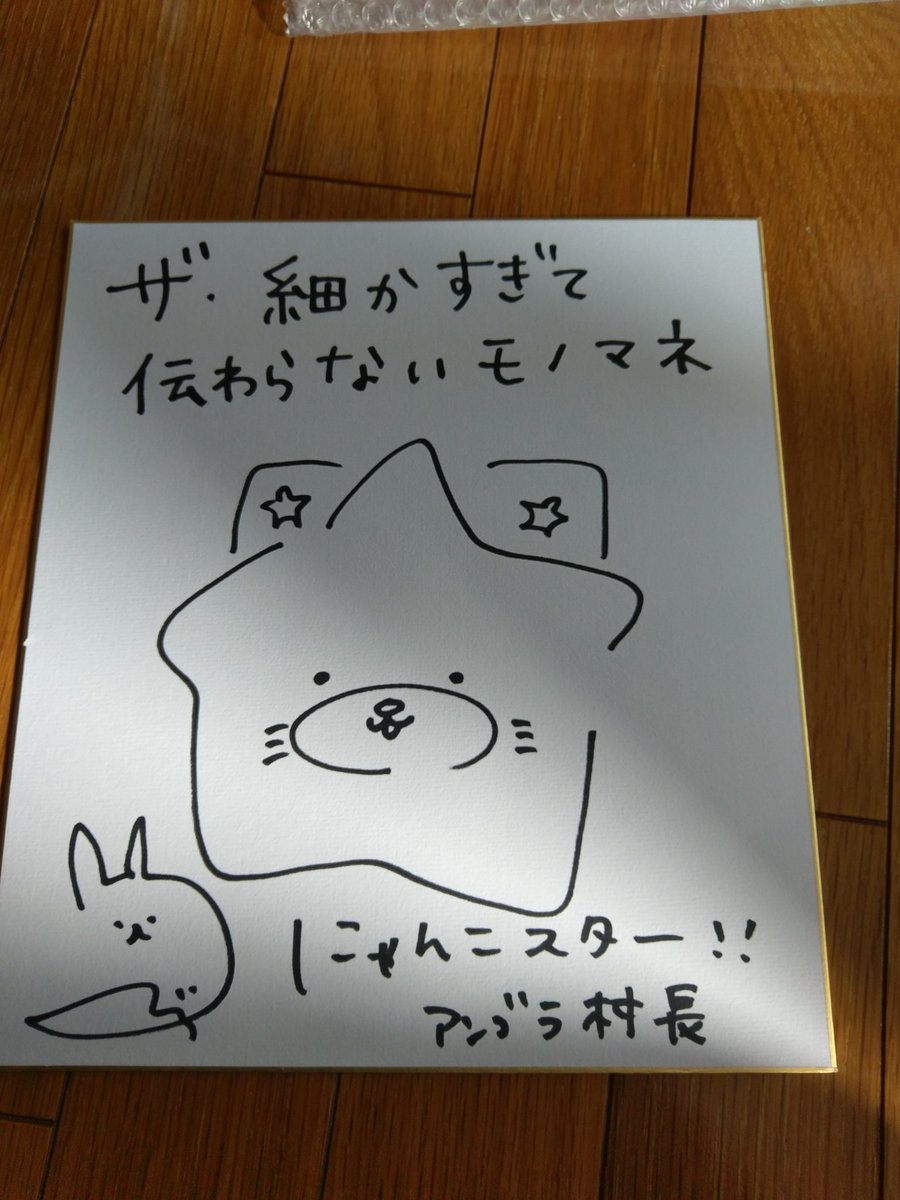 ザ・細かすぎて
伝わらないモノマネ
にゃんこスター!!
アンゴラ村長